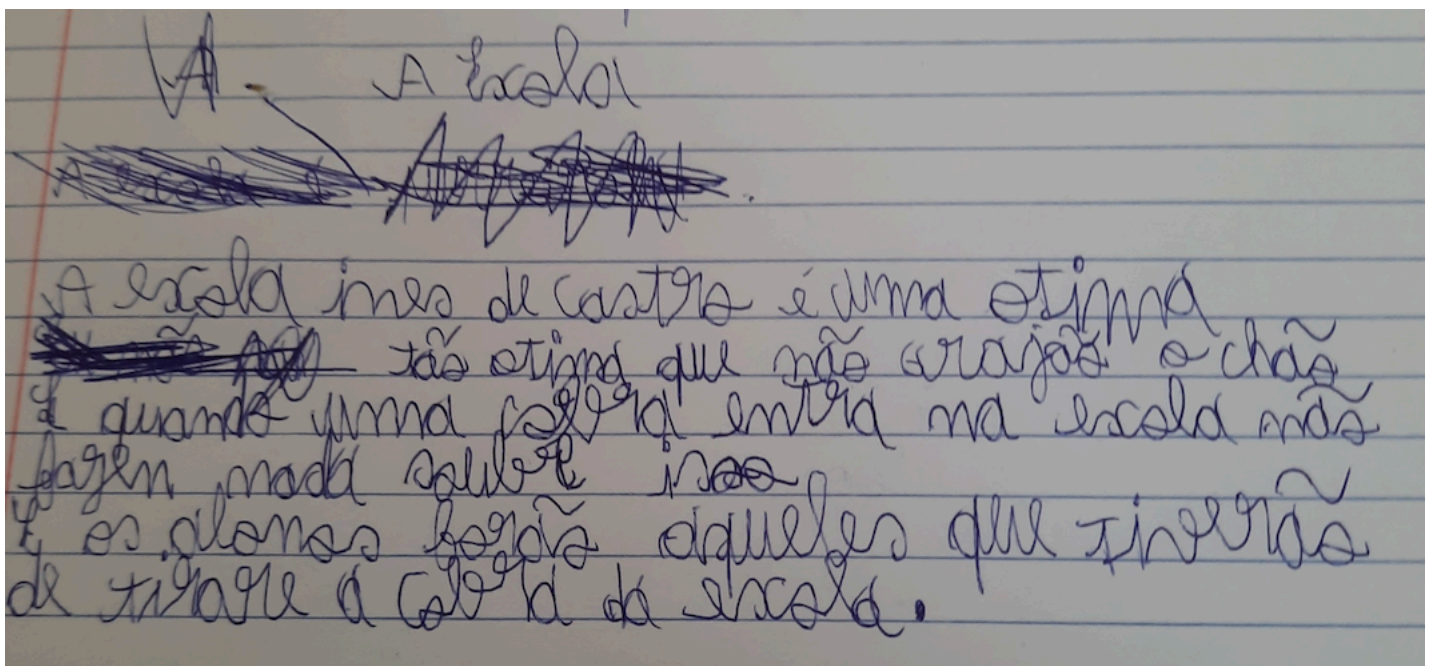 A Escola
A escola ines de castro é uma otima
tão otima que não arajão o chão
E quando uma cobra entra na escola não
fazen nada soubre isoo
E os alonos forão aqueles que tiverão
de tirare a cobra da escola.